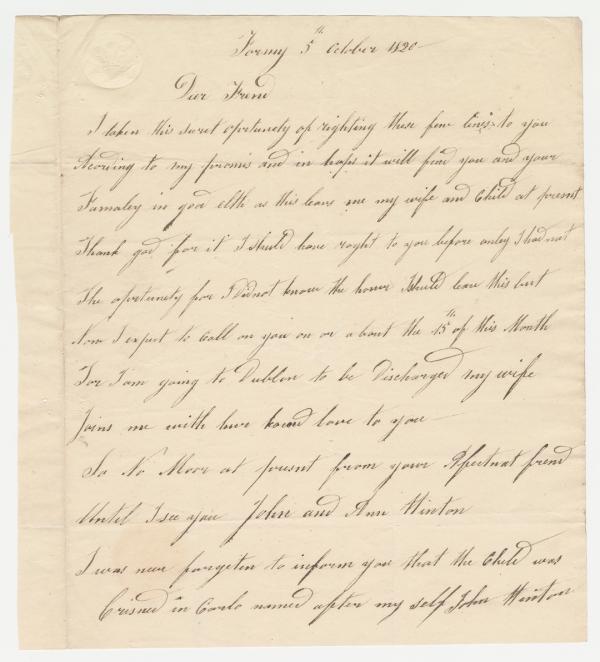 Formy 5th October 1820
Deer Frend
I taken this sucret oportunety of righting these few lines to you
Acording to my promis and in hops it will find you and your
Famaley in god elth as this leavs me my wife and Child at presnt
Thank god for it I Should have roght to you before onley I had not
The oportunety for I Did not know the hower I Should leave this but
Now I expect to Call on you on or a bout the 15th of this Month
For I am going to Dublon to be Discharged my wife
Joins me with hur kound love to you
So No More at presnt from your Afectunat frend
Until I see you John and Ann Hinton
I was near forgeten to inform you that the Child was
Crisned in Carlo named after my self John Hinton